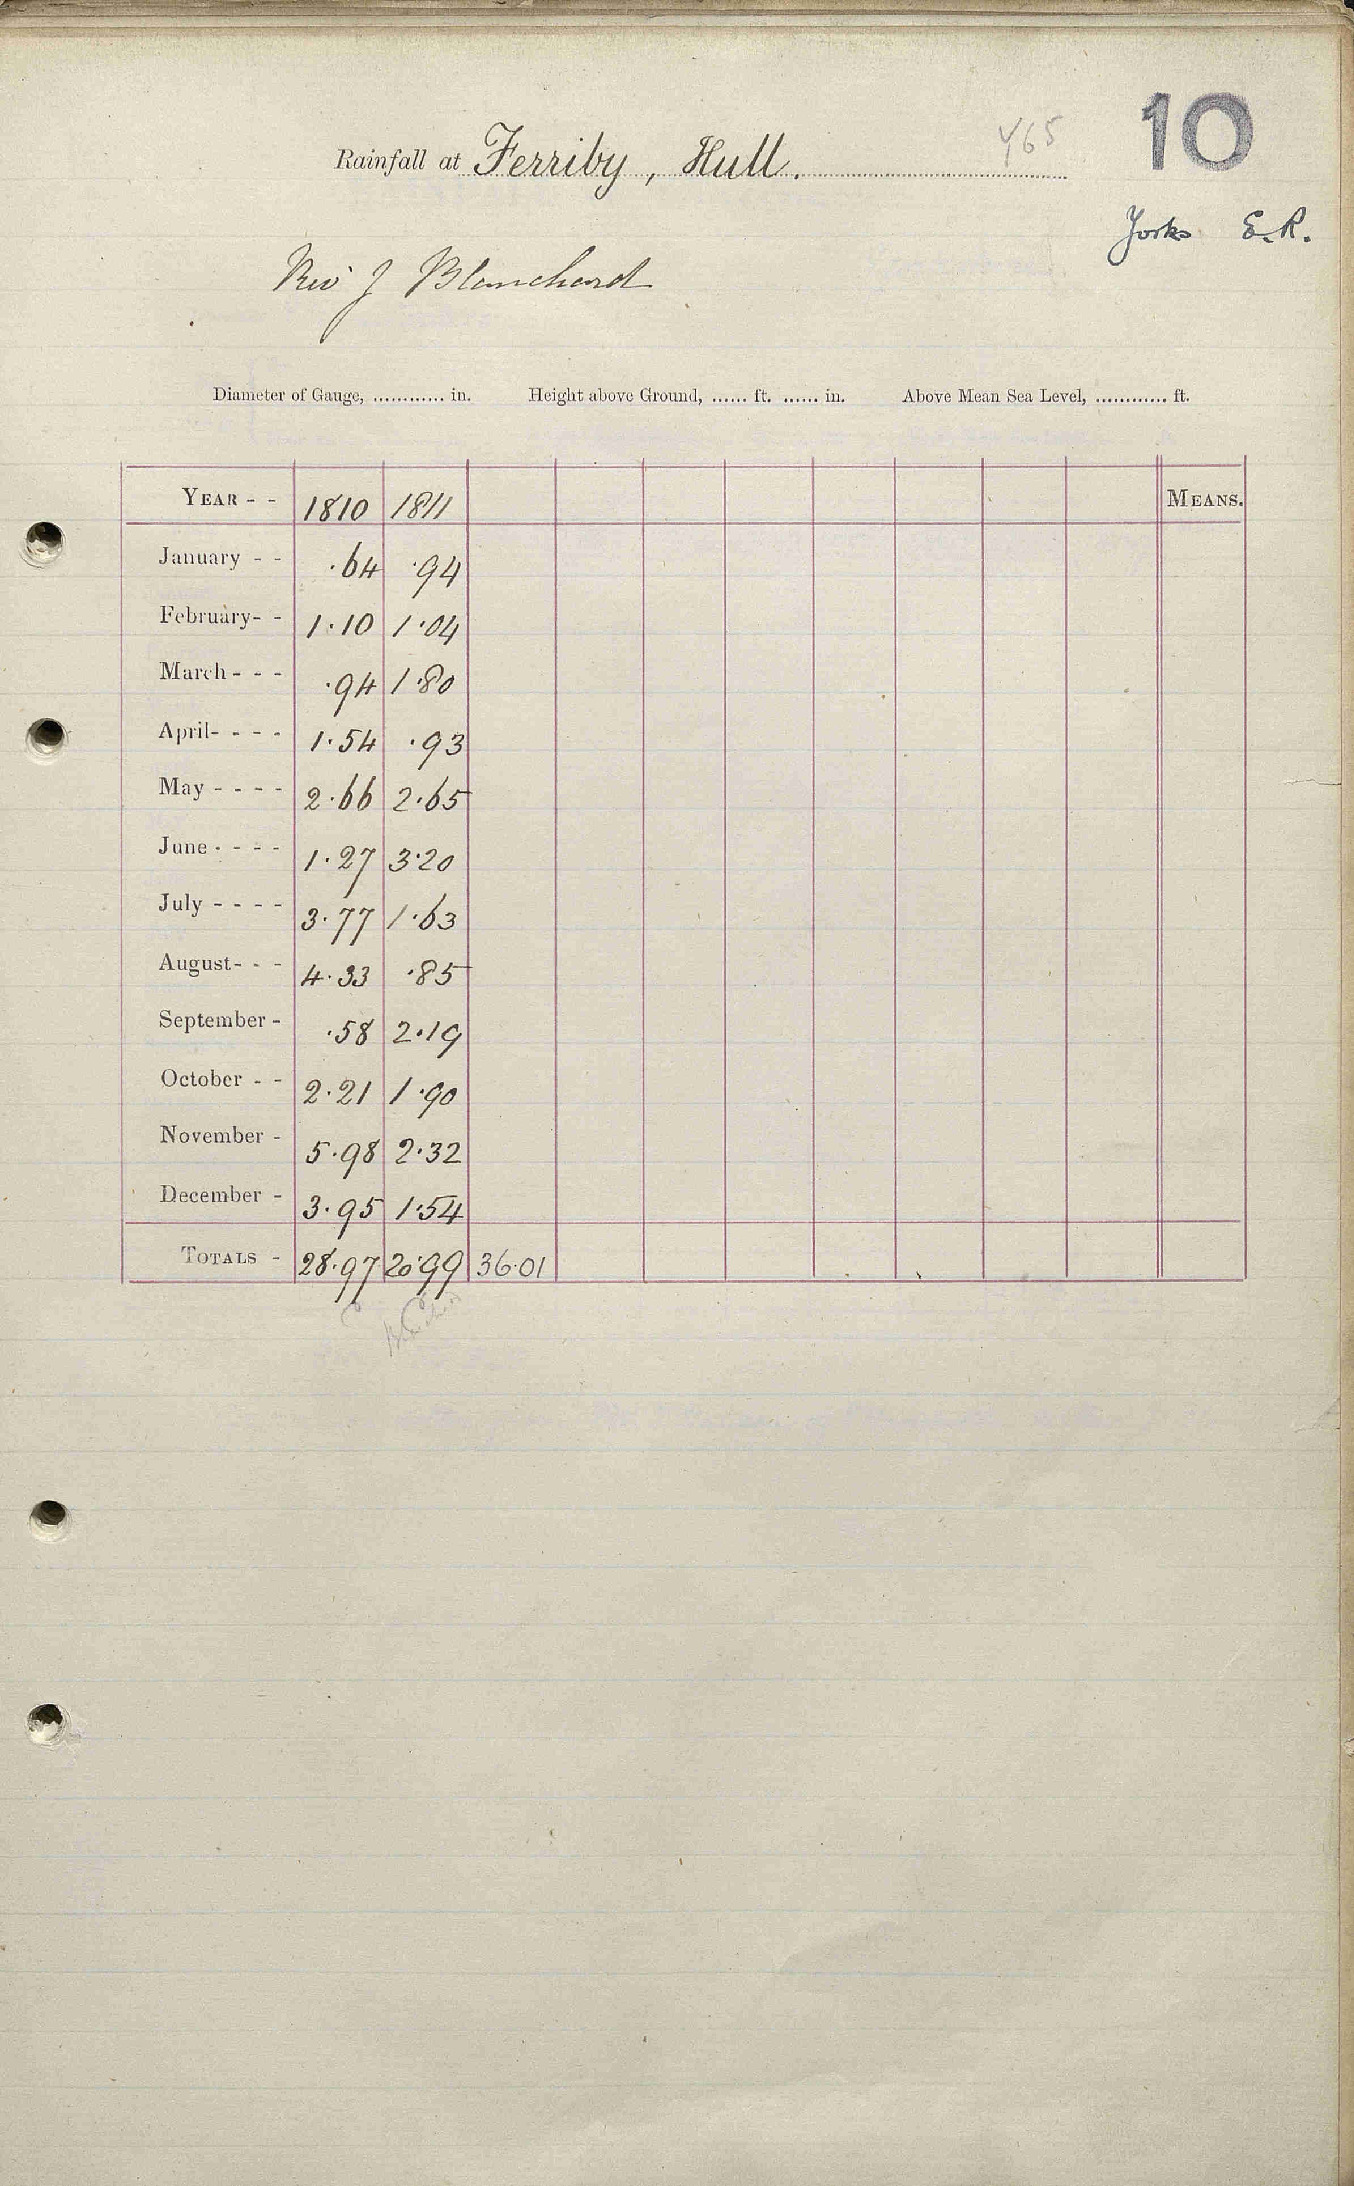 465
10
Rainfall at Ferriby, Hull.
Yorks E.R.
Rev J Blanchard
Diameter of Gauge, ............ in. Height above Ground, ...... ft. ...... in. Above Mean Sea Level, ............ ft.
YEAR - - 1810 1811 MEANS.
January - - .64 .94
February- - 1.10 1.04
March- - - .94 1.80
April- - - - 1.54 .93
May - - - - 2.66 2.65
June - - - - 1.27 3.20
July - - - - 3.77 1.63
August- - - 4.33 .85
September - .58 2.19
October - - 2.21 1.90
November - 5.98 2.32
December - 3.95 1.54
TOTALS - 28.97 20.99 36.01